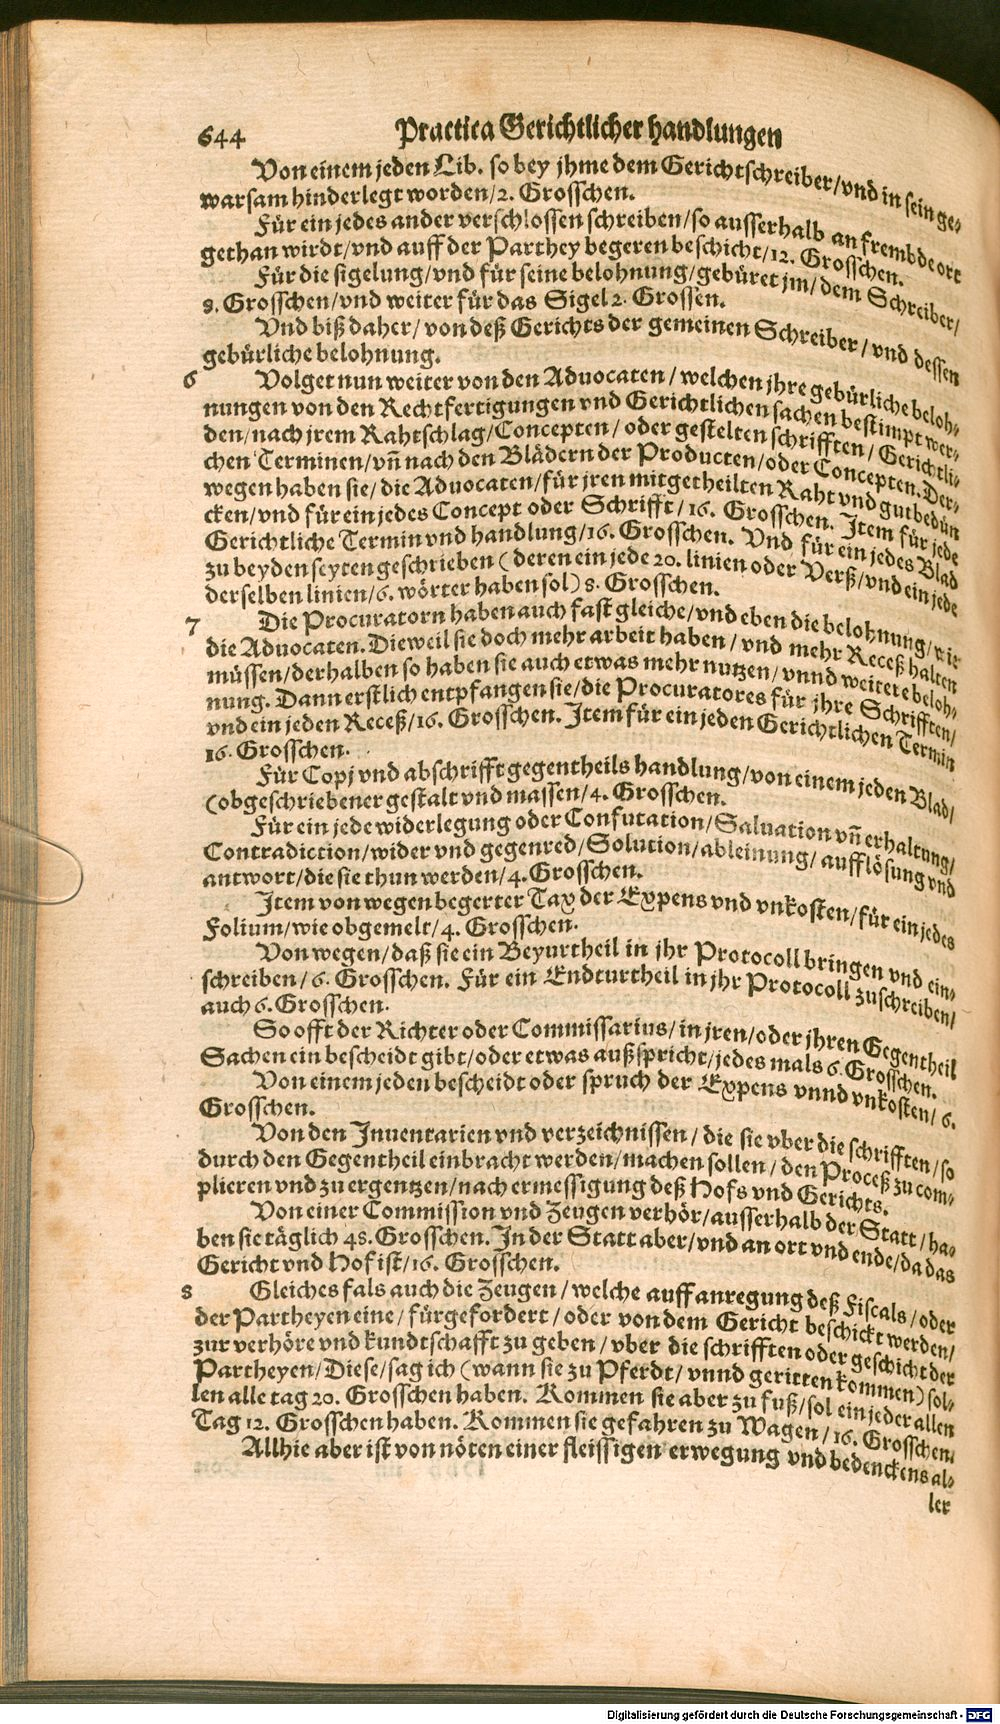 644 Practica Gerichtlicher handlungen
Von einem jeden Lib. so bey jhme dem Gerichtschreiber/vnd in sein ge-
warsam hinderlegt worden/2. Grosschen.
Für ein jedes ander verschlossen schreiben/so ausserhalb an frembde ort
gethan wirdt/vnd auff der Parthey begeren beschicht/12. Grosschen.
Für die sigelung/vnd für seine belohnung/gebüret jm/dem Schreiber/
8. Grosschen/vnd weiter für das Sigel 2. Grossen.
Vnd biß daher/von deß Gerichts der gemeinen Schreiber/vnd dessen
gebürliche belohnung.
6 Volget nun weiter von den Aduocaten/welchen jhre gebürliche beloh-
nungen von den Rechtfertigungen vnd Gerichtlichen sachen bestimpt wer-
den/nach jrem Rahtschlag/Concepten/oder gestelten schrifften/Gerichtli-
chen Terminen/vñ nach den Blädern der Producten/oder Concepten. Der-
wegen haben sie/die Aduocaten/für jren mitgetheilten Raht vnd gutbedün
cken/vnd für ein jedes Concept oder Schrifft/16. Grosschen. Item für jede
Gerichtliche Termin vnd handlung/16. Grosschen. Vnd für ein jedes Blad
zu beyden seyten geschrieben (deren ein jede 20. linien oder Verß/vnd ein jede
derselben linien/6. wörter haben sol) 8. Grosschen.
7 Die Procuratorn haben auch fast gleiche/vnd eben die belohnung/wie
die Aduocaten. Dieweil sie doch mehr arbeit haben/vnd mehr Receß halten
müssen/derhalben so haben sie auch etwas mehr nutzen/vnnd weitere beloh-
nung. Dann erstlich entpfangen sie/die Procuratores für jhre Schrifften/
vnd ein jeden Receß/16. Grosschen. Item für ein jeden Gerichtlichen Termin
16. Grosschen.
Für Copj vnd abschrifft gegentheils handlung/von einem jeden Blad/
(obgeschriebener gestalt vnd massen/4. Grosschen.
Für ein jede widerlegung oder Confutation/Saluation vñ erhaltung/
Contradiction/wider vnd gegenred/Solution/ableinung/aufflösung vnd
antwort/die sie thun werden/4. Grosschen.
Item von wegen begerter Tax der Expens vnd vnkosten/für ein jedes
Folium/wie obgemelt/4. Grosschen.
Von wegen/daß sie ein Beyurtheil in jhr Protocoll bringen vnd ein-
schreiben/6. Grosschen. Für ein Endturtheil in jhr Protocoll zuschreiben/
auch 6. Grosschen.
So offt der Richter oder Commissarius/in jren/oder jhren Gegentheil
Sachen ein bescheidt gibt/oder etwas außspricht/jedes mals 6. Grosschen.
Von einem jeden bescheidt oder spruch der Expens vnnd vnkosten/6.
Grosschen.
Von den Inuentarien vnd verzeichnissen/die sie vber die schrifften/so
durch den Gegentheil einbracht werden/machen sollen/den Proceß zu com-
plieren vnd zu ergentzen/nach ermessigung deß Hofs vnd Gerichts.
Von einer Commission vnd Zeugen verhör/ausserhalb der Statt/ha-
ben sie täglich 48. Grosschen. In der Statt aber/vnd an ort vnd ende/da das
Gericht vnd Hof ist/16. Grosschen.
8 Gleiches fals auch die Zeugen/welche auff anregung deß Fiscals/oder
der Partheyen eine/fürgefordert/oder von dem Gericht beschickt werden/
zur verhöre vnd kundtschafft zu geben/vber die schrifften oder geschicht der
Partheyen/Diese/sag ich (wann sie zu Pferdt/vnnd geritten kommen) sol-
len alle tag 20. Grosschen haben. Kommen sie aber zu fuß/sol ein jeder allen
Tag 12. Grosschen haben. Kommen sie gefahren zu Wagen/16. Grosschen.
Allhie aber ist von nöten einer fleissigen erwegung vnd bedenckens al-
ler
Digitalisierung gefördert durch die Deutsche Forschungsgemeinschaft - DFG